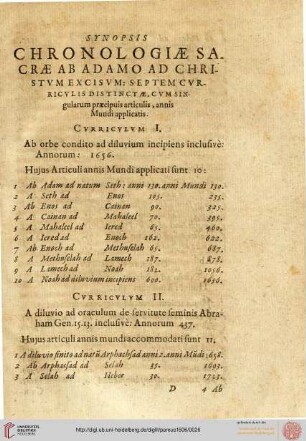 SYNOPSIS
CHRONOLOGIÆ SA-
CRÆ AB ADAMO AD CHRI-
STVM EXCISVM: SEPTEM CVR-
RICVLIS DISTINCTÆ, CVM SIN-
gularum præcipuis articulis, annis
Mundi applicatis.
CVRRICVLVM I.
Ab orbe condito ad diluvium incipiens inclusivè:
Annorum: 1656.
Hujus Articuli annis Mundi applicati sunt 10:
1 Ab Adam ad natum Seth: anni 130. anni Mundi 130.
2 A Seth ad Enos 105. 235.
3 Ab Enos ad Cainan 90. 325.
4 A Cainan ad Mahaleel 70. 395.
5 A Mahaleel ad Iered 65. 460.
6 A Iered ad Enoch 162. 622.
7 Ab Enoch ad Methuselah 65. 687.
8 A Methuselah ad Lamech 187. 874.
9 A Lamech ad Noah 182. 1056.
10 A Noah ad diluvium incipiens 600. 1656.
CVRRICVLVM II.
A diluvio ad oraculum de servitute seminis Abra-
ham Gen. 15.13. inclusivè: Annorum 437.
Hujus articuli annis mundi accommodati sunt 11.
1 A diluvio finito ad natũ Arphachsad anni 2. anni Mũdi 1658.
2 Ab Arphaxsad ad Selah 35. 1693.
3 A Selah ad Heber 30. 1723.
D 4 Ab
UNIVERSITÄTS-
BIBLIOTHEK
HEIDELBERG
http://digi.ub.uni-heidelberg.de/diglit/pareus1606/0026